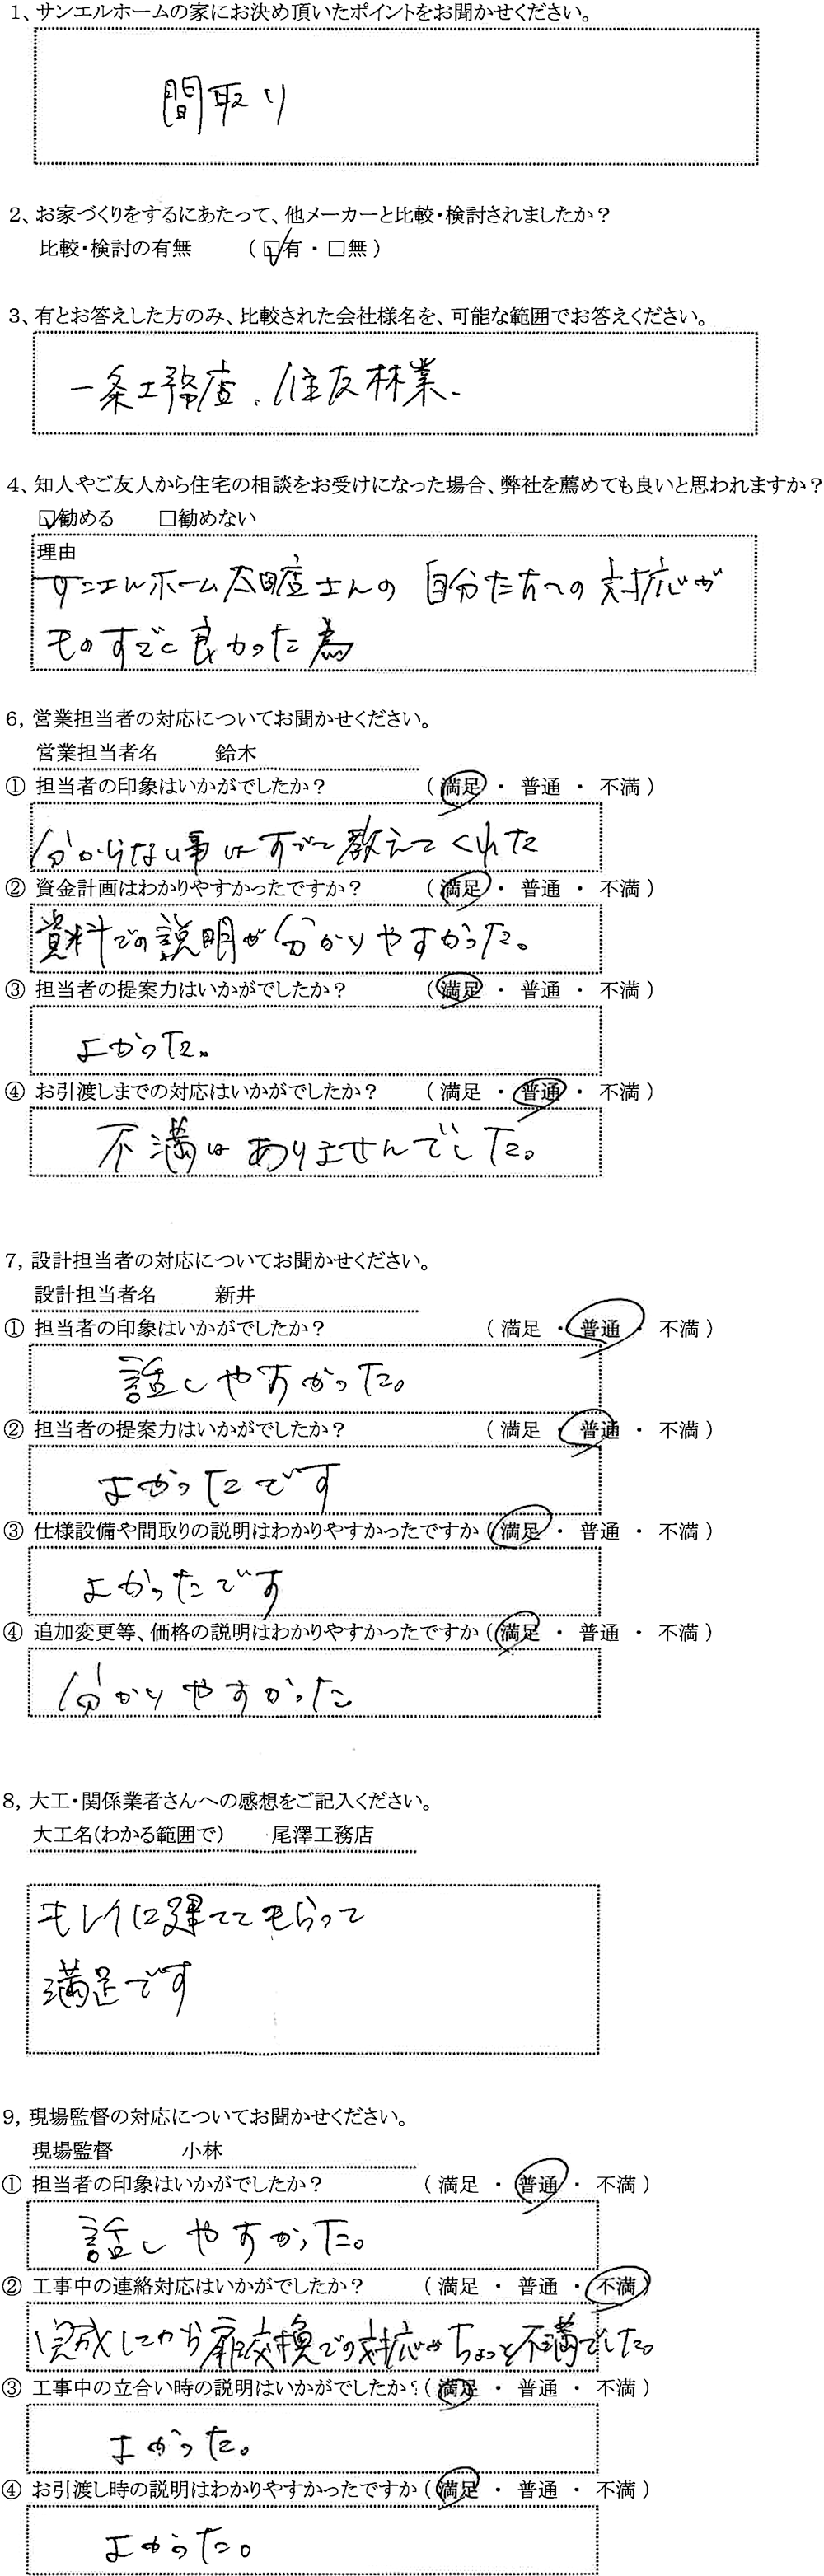 1、サンエルホームの家にお決め頂いたポイントをお聞かせください。
間取り
2、お家づくりをするにあたって、他メーカーと比較・検討されましたか？
比較・検討の有無 （☑有・□無）
3、有とお答えした方のみ、比較された会社様名を、可能な範囲でお答えください。
一条工務店、住友林業、
4、知人やご友人から住宅の相談をお受けになった場合、弊社を薦めても良いと思われますか？
☑勧める □勧めない
理由
サンエルホーム太田店さんの自分たちへの対応が
ものすごく良かった為
6, 営業担当者の対応についてお聞かせください。
営業担当者名 鈴木
① 担当者の印象はいかがでしたか？ （満足 ・ 普通 ・ 不満）
分からない事はすべて教えてくれた
② 資金計画はわかりやすかったですか？ （満足 ・ 普通 ・ 不満）
資料での説明が分かりやすかった。
③ 担当者の提案力はいかがでしたか？ （満足 ・ 普通 ・ 不満）
よかった。
④ お引渡しまでの対応はいかがでしたか？ （満足 ・ 普通 ・ 不満）
不満はありませんでした。
7, 設計担当者の対応についてお聞かせください。
設計担当者名 新井
① 担当者の印象はいかがでしたか？ （満足 ・ 普通 ・ 不満）
話しやすかった。
② 担当者の提案力はいかがでしたか？ （満足 ・ 普通 ・ 不満）
よかったです
③ 仕様設備や間取りの説明はわかりやすかったですか（満足 ・ 普通 ・ 不満）
よかったです
④ 追加変更等、価格の説明はわかりやすかったですか（満足 ・ 普通 ・ 不満）
分かりやすかった
8, 大工・関係業者さんへの感想をご記入ください。
大工名(わかる範囲で) 尾澤工務店
キレイに建ててもらって
満足です
9, 現場監督の対応についてお聞かせください。
現場監督 小林
① 担当者の印象はいかがでしたか？ （満足 ・ 普通 ・ 不満）
話しやすかった。
② 工事中の連絡対応はいかがでしたか？ （満足 ・ 普通 ・ 不満）
完成してから扉交換での対応がちょっと不満でした。
③ 工事中の立合い時の説明はいかがでしたか？（満足 ・ 普通 ・ 不満）
よかった。
④ お引渡し時の説明はわかりやすかったですか（満足 ・ 普通 ・ 不満）
よかった。